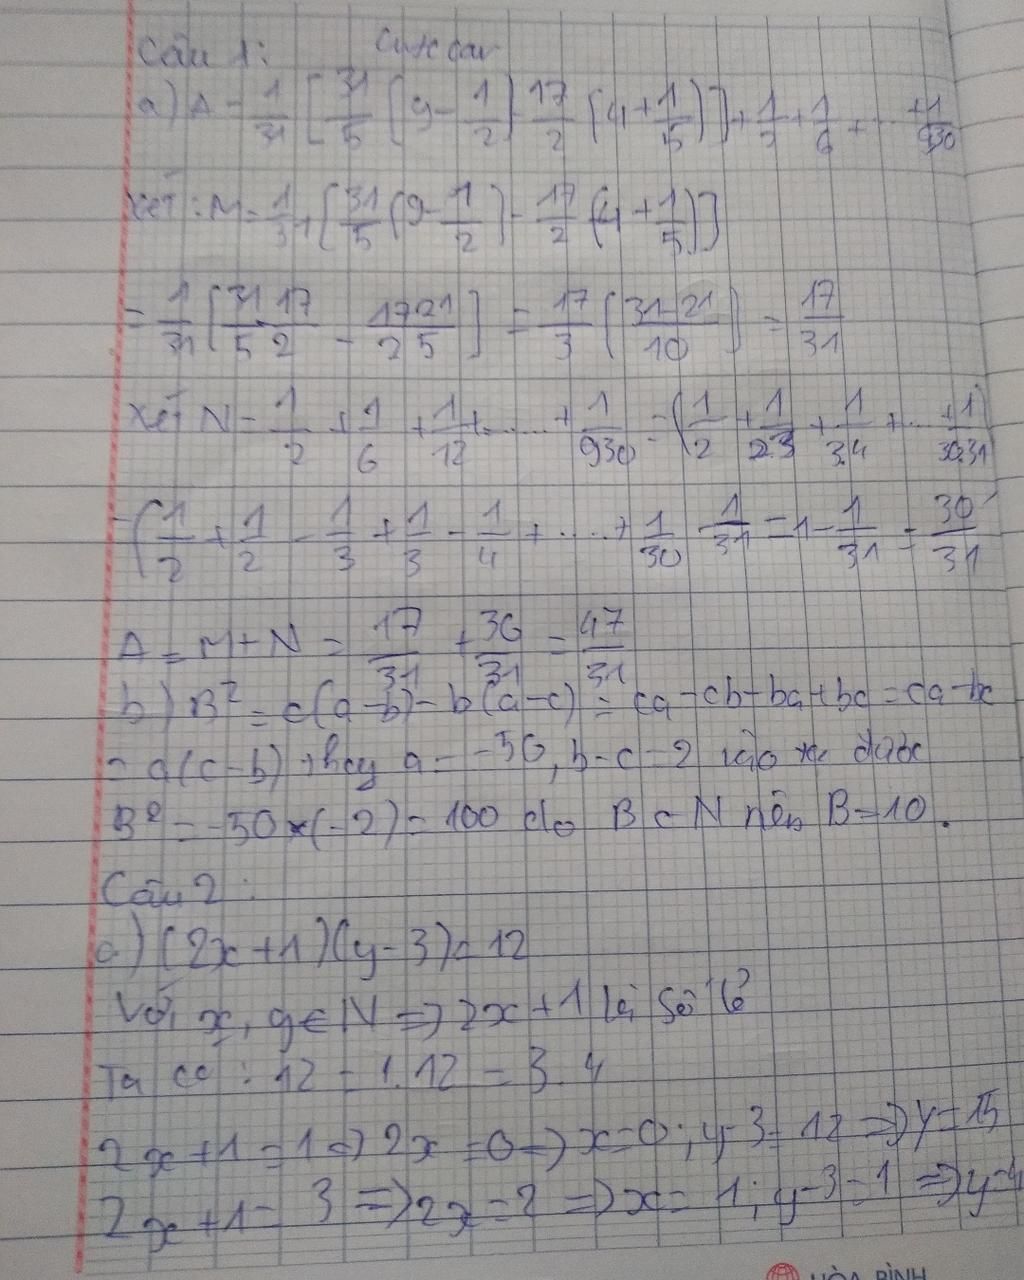 Câu 1:
a) A = 1/31 [31/5 (9 - 1/2) - 17/2 (4 + 1/5)] + 1/2 + 1/6 + ... + 1/930
Xét: M = 1/31 [31/5 (9 - 1/2) - 17/2 (4 + 1/5)]
= 1/31 [31/5 17/2 - 17/2 21/5] = 17/3 [31-21/10] = 17/31
Xét N = 1/2 + 1/6 + 1/12 + ..... + 1/930 = (1/2 + 1/2.3 + 1/3.4 + ... + 1/30.31
= (1/2 + 1/2 - 1/3 + 1/3 - 1/4 + ..... + 1/30 - 1/31 = 1 - 1/31 = 30/31
A = M + N = 17/31 + 30/31 = 47/31
b) B² = c(a-b) - b(a-c) = ca - cb - ba + bc = ca - bc
= a(c-b) thay a = -50, b-c = 2 vào
B² = -50 × (-2) = 100 do B ∈ N nên B = 10.
Câu 2:
a) (2x+1)(y-3) = 12
Với x, y ∈ N => 2x+1 là số lẻ
Ta có: 12 = 1.12 = 3.4
2x+1 = 1 => 2x = 0 => x = 0; y-3 = 12 => y = 15
2x+1 = 3 => 2x = 2 => x = 1; y-3 = 1 => y = 4
HÒA BÌNH